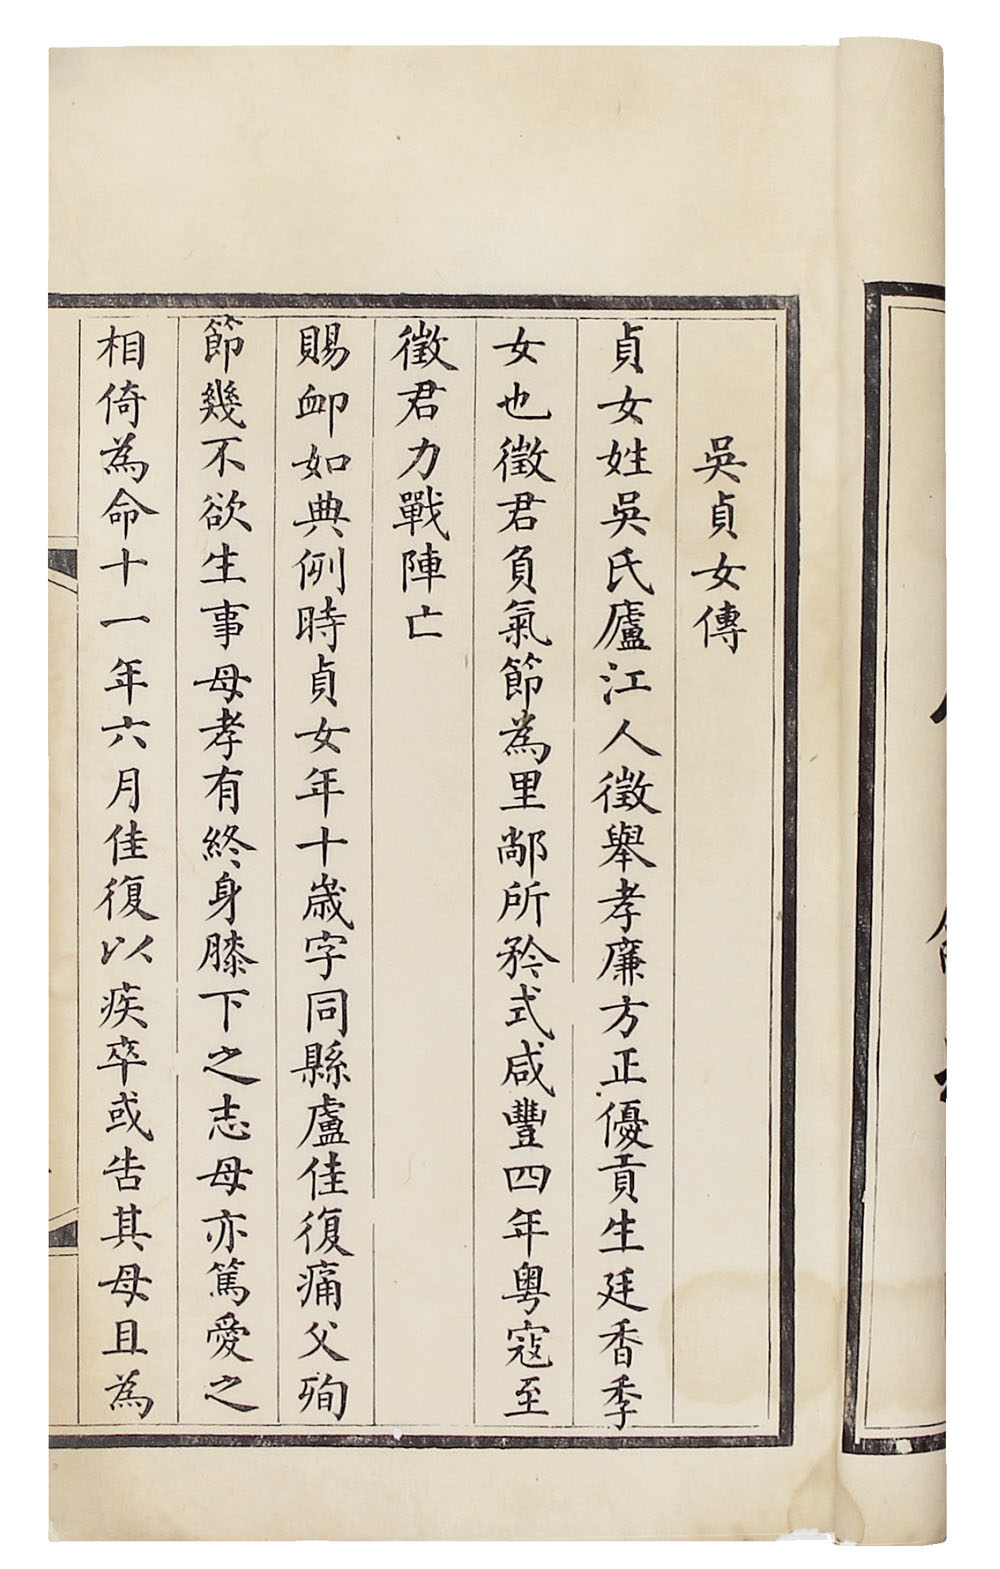 吳貞女傳
貞女姓吳氏廬江人徵舉孝廉方正優貢生廷香季
女也徵君負氣節為里鄰所矜式咸豐四年粵寇至
徵君力戰陣亡
賜卹如典例時貞女年十歲字同縣盧佳復痛父殉
節幾不欲生事母孝有終身膝下之志母亦篤愛之
相倚為命十一年六月佳復以疾卒或告其母且為